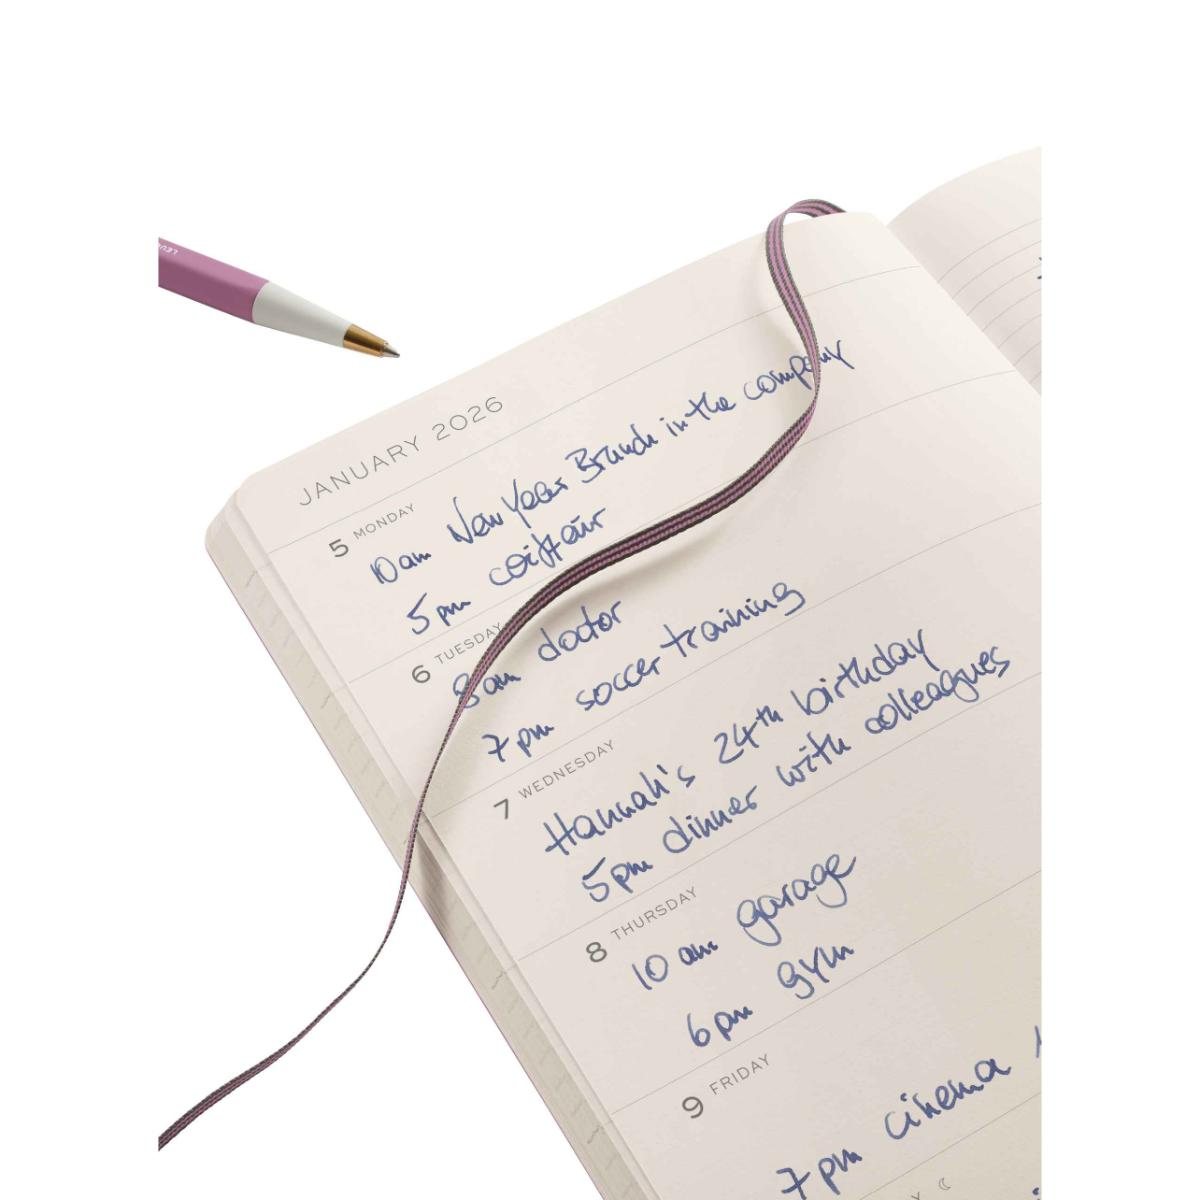 JANUARY 2026
5 MONDAY
10am New Years Brunch in the company
5pm coiffeur
6 TUESDAY
8am doctor
7pm soccer training
7 WEDNESDAY
Hannah's 24th birthday
5pm dinner with colleagues
8 THURSDAY
10 am garage
6pm gym
9 FRIDAY
7pm cinema